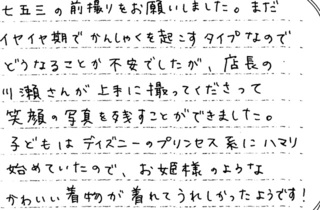 七五三の前撮りをお願いしました。まだ
イヤイヤ期でかんしゃくを起こすタイプなので
どうなることか不安でしたが、店長の
川瀬さんが上手に撮ってくださって
笑顔の写真を残すことができました。
子どもはディズニーのプリンセス系にハマリ
始めていたので、お姫様のような
かわいい着物が着れてうれしかったようです!